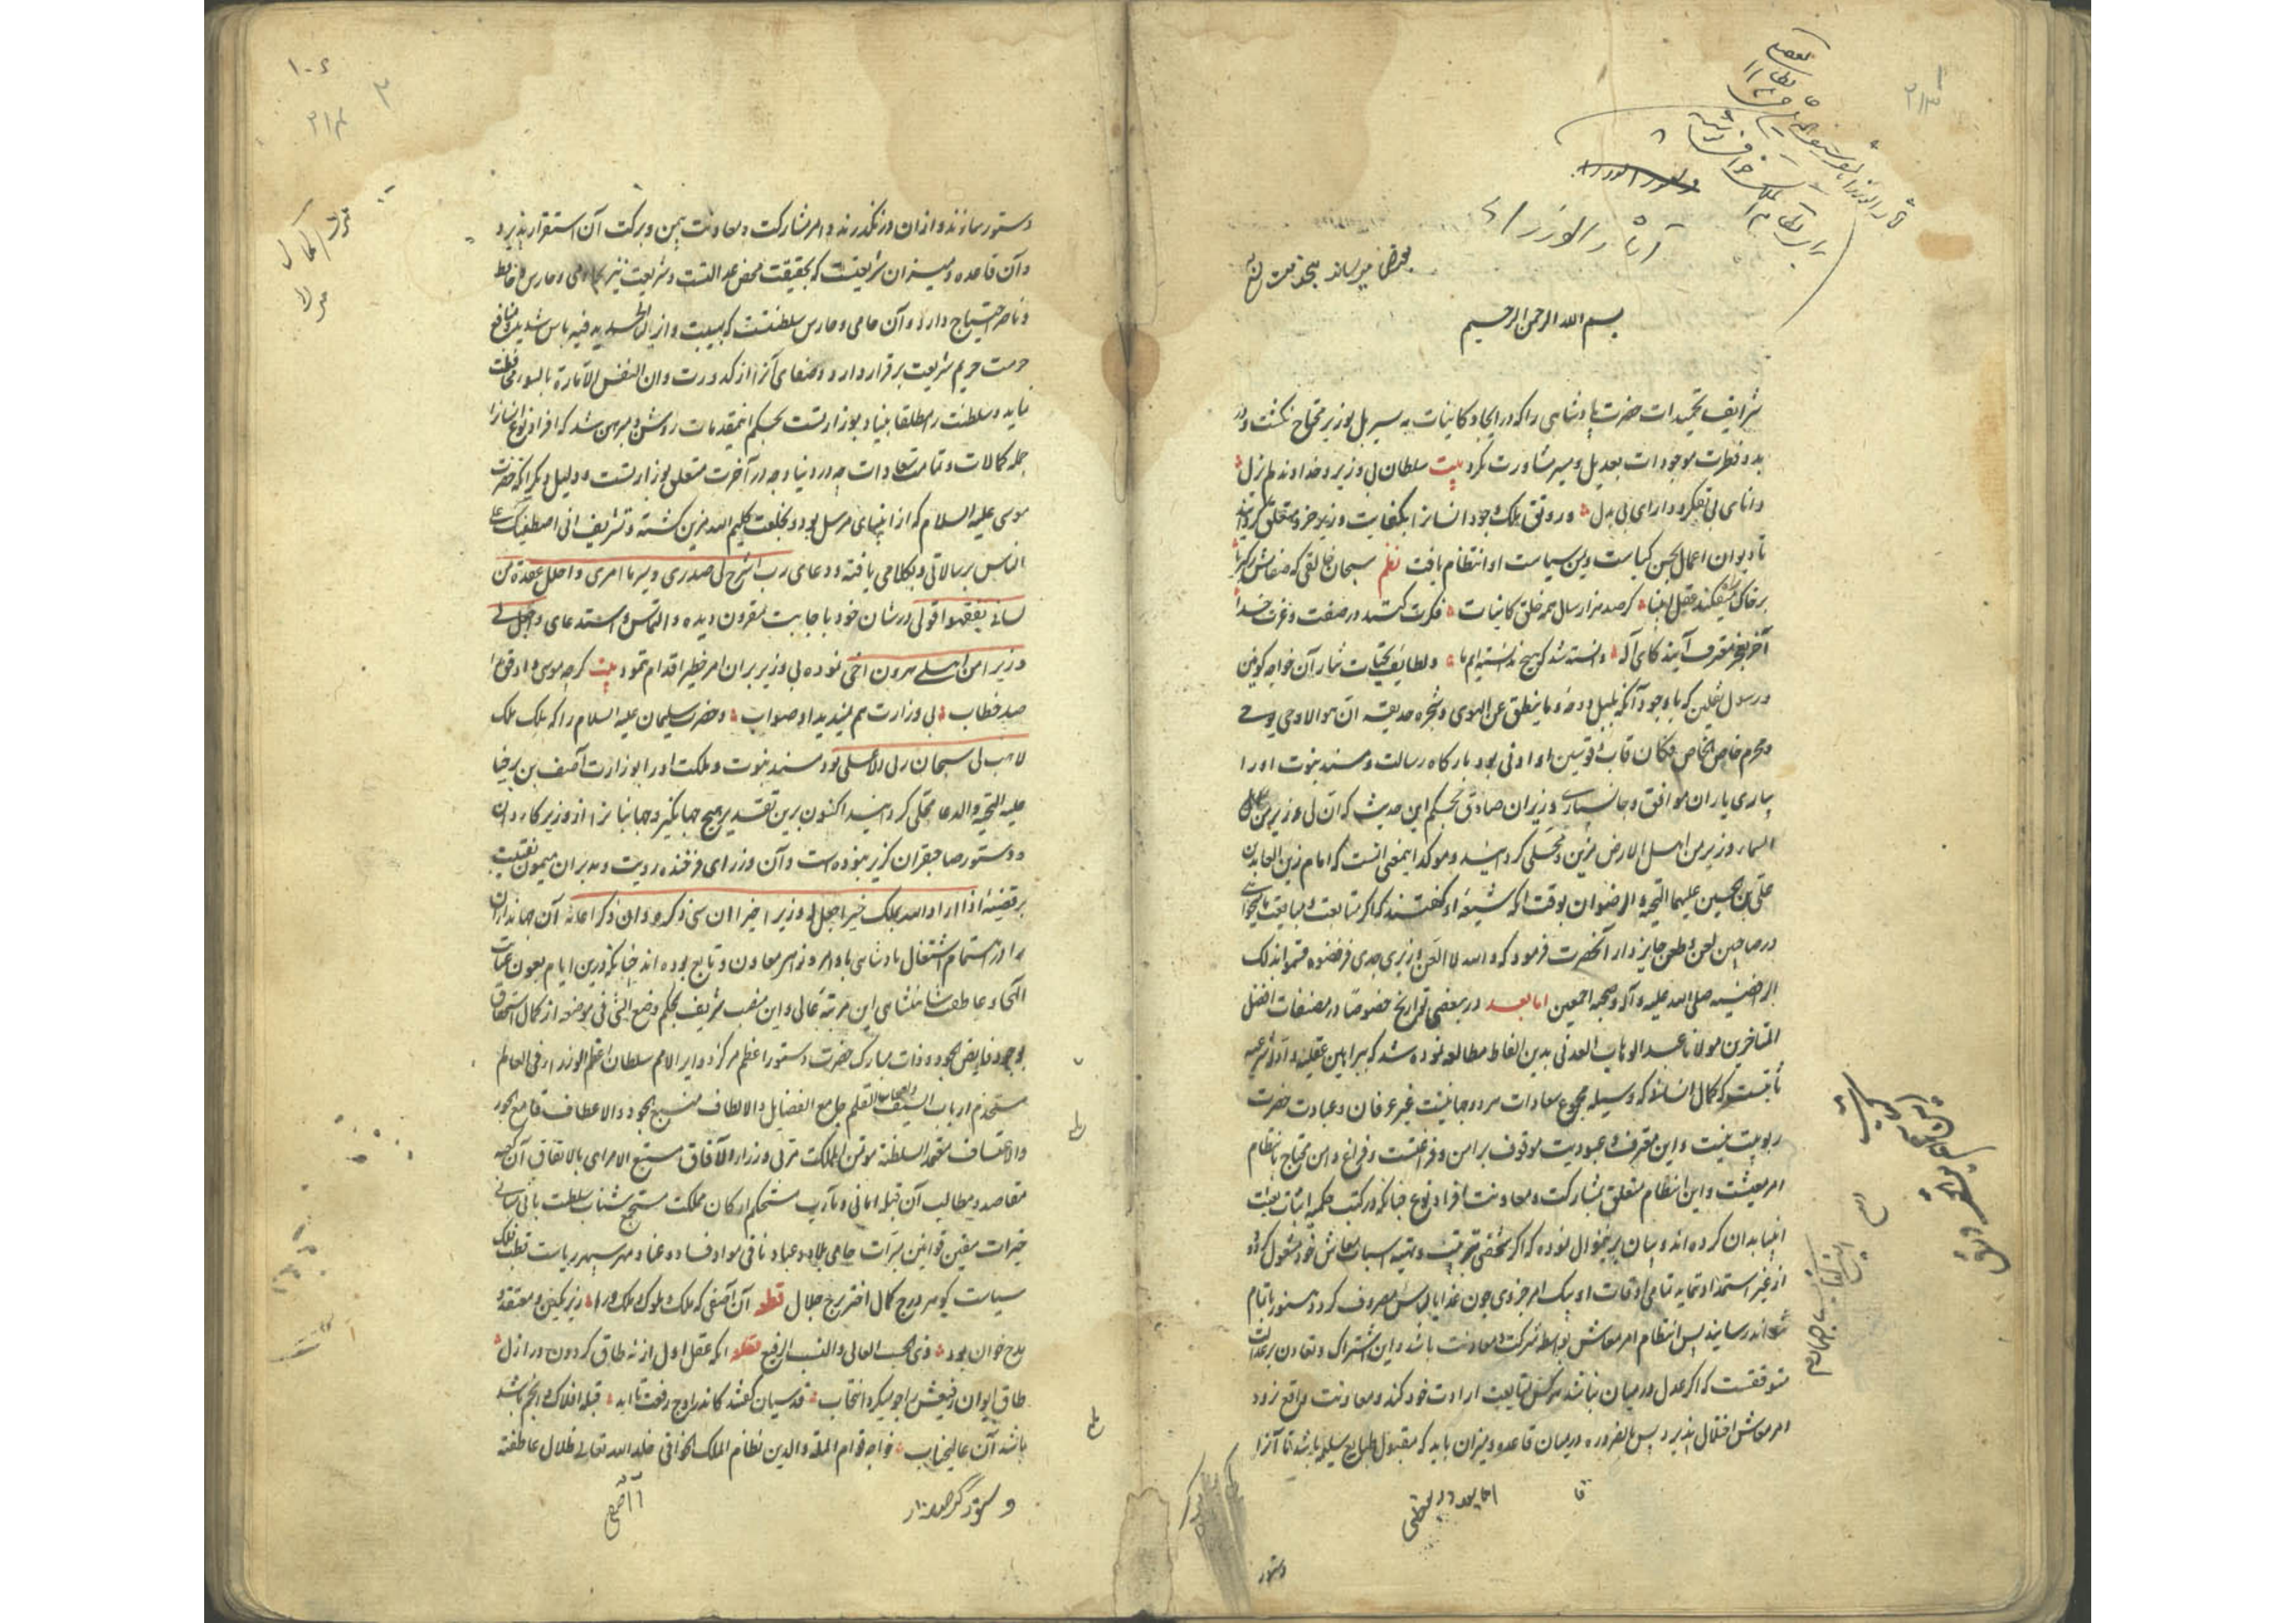 آثار الوزراء
بعرض میرساند
بسم الله الرحمن الرحیم
شرایف تحمیدات حضرت پادشاهی را که در ایجاد کاینات به سیر بل بوزیر محتاج نگشت و در
بدو فطرت موجودات بعدیل و مشیر مشاورت نکرد بیت سلطان بی وزیر و خداوند لم یزل
دانای بی تفکر و دارای بی بدل و رونق ملک وجود انسانرا بکفایت وزیر خرد متعلق گردانید
تا دیوان اعمال بحسن کیاست و یمن سیاست او انتظام یافت نظم سبحان خالقی که صفاتش ز کبریا
بر خاک عجز میفکند عقل انبیا گر صد هزار سال همه خلق کاینات فکرت کنند در صفت و عزت خدا
آخر بعجز معترف آیند کای آله دانسته شد که هیچ ندانسته ایم ما و لطایف تحیات نثار آن خواجه کونین
و رسول ثقلین که با وجود آنکه بلبل روضه و ما ینطق عن الهوی و شجره حدیقه ان هو الا وحی یوحی
و محرم خاص الخاص فکان قاب قوسین او ادنی بود بارگاه رسالت و مسند نبوت او را
بیاری یاران موافق و جانسپاری وزیران صادق بحکم این حدیث که ان لی وزیرین من اهل
السماء و زیرین من اهل الارض مزین و محلی گردانید و موکد اینمعنی انست که امام زین العابدین
علی بن الحسین علیهما التحیة و الرضوان بوقت آنکه شیعه او گفتند که اگر متابعت و مبایعت ما میخواهی
در صاحبین لعن و طعن جایز دار آنحضرت فرمود که و الله لا العن وزیری جدی فرفضوه فسموا بذلک
الرافضیه صلی الله علیه و آله و صحبه اجمعین اما بعد در بعضی تواریخ خصوصا در مصنفات افضل
المتاخرین مولانا عبد الوهاب العدنی بدین الفاظ مطالعه نموده شد که ببراهین عقلیه و ادله شرعیه
ثابتست که کمال انسانی که وسیله مجموع سعادات هر دو جهانیست غیر عرفان و عبادت حضرت
ربوبیت نیست و این معرفت و عبودیت موقوف بر امن و فراغتست و فراغ و امن محتاج بانتظام
امر معیشت و این انتظام متعلق بمشارکت و معاونت افراد نوع چنانکه در کتب حکمیه اثبات بعثت
انبیا بدان کرده اند و بیان بر ینموال نموده که اگر شخصی بترتیب و تهیه اسباب معاش خود مشغول گردد و
از غیر استمداد ننماید تمامی اوقات او بیک امر جزوی چون غذا یا لباس مصروف گردد و هنوز باتمام
نتواند رسانید پس انتظام امر معاش بواسطه شرکت و معاونت باشد و این اشتراک و تعاون بر عدالت
متوقفست که اگر عدل در میان نباشد هر کس متابعت ارادت خود کند و معاونت واقع نشود
امر معاش اختلال پذیرد پس بالضروره در میان قاعده و میزان باید که مقبول طبایع سلیمه باشد تا آنرا
دستور
دستور سازند و از ان در نگذرند و امر مشارکت و معاونت بیمن و برکت آن استقرار پذیرد
و آن قاعده و میزان شریعتست که بحقیقت محض عدالتست و شریعت نیز بحامی و حارس و حافظ
و ناصر احتیاج دارد و آن حامی و حارس سلطنتست که بهیبت و انزلنا الحدید فیه باس شدید و منافع
حرمت حریم شریعت بر قرار دارد و صفای آنرا از کدورت و ان النفس لامارة بالسوء محافظت
نماید و سلطنت را مطلقا بنیاد بوزارتست بحکم اینمقدمات روشن و مبرهن شد که افراد نوع انسانرا
جمله کمالات و تمامت سعادات چه در دنیا و چه در آخرت متعلق بوزارتست و دلیل دیگر آنکه حضرت
موسی علیه السلام که از انبیای مرسل بود و بخلعت کلیم الله مزین گشته و تشریف انی اصطفیتک علی
الناس برسالاتی و بکلامی یافته و دعای رب اشرح لی صدری و یسر لی امری و احلل عقدة من
لسانی یفقهوا قولی در شان خود باجابت مقرون دیده و التماس و استدعای و اجعل لی
وزیرا من اهلی هرون اخی نموده بی وزیر بران امر خطیر اقدام ننمود بیت گر چه موسی داد قوم را
صد خطاب بی وزارت هم ندید او صواب و حضرت سلیمان علیه السلام را که ملک ملک
لا هب لی سبحان ربی الاعلی بود مسند نبوت و ملکت او را بوزارت آصف بن برخیا
علیه التحیة و الدعا محلی گردانید اکنون برین تقدیر هیچ جهانگیر و جهانبانرا از وزیر کاردان
و دستور صاحبقران گزیر نبوده است و آن وزرای فرخنده رویت و مدبران میمون نقیبت
بر قضیه اذا اراد الله بملک خیرا جعل له وزیرا خیرا ان نسی ذکره و ان ذکر اعانه آن جهانداران
را در استمام اشتغال پادشاهی باوامر و نواهی معاون و تابع بوده اند چنانکه درین ایام بعون عنایت
آلهی و عاطفت شاهنشاهی این مرتبه عالی و این منصب شریف بحکم وضع الشی فی موضعه از کمال استحقاق
بوجود فایض الجود و ذات مبارک حضرت دستور اعظم مرکز دوایر الامم سلطان اعظم الوزراء فی العالم
مستخدم ارباب السیف و القلم جامع الفضایل و الالطاف منبع الجود و الاعطاف قامع الجور
و الاعتساف معتمد السلطنه موتمن المملکت مربی وزراء الآفاق مستتبع الامراء بالاتفاق آن کعبه
مقاصد و مطالب آن قبله امانی و مآرب مستحکم ارکان مملکت مستجمع شتات سلطنت بانی مبانی
خیرات مقنن قوانین مبرات حامی بلاد و عباد نافی مواد فساد و عناد مهر سپهر ریاست قطب فلک
سیاست گوهر درج کمال اختر برج جلال قطعه آن آصفی که ملک و ملوک ملوک را زیر نگین و معتقد و
مدح خوان بود ذی الحسب العالی و النسب الرفیع قطعه آنکه عقل اول از نه طاق گردون در ازل
طاق ایوان رفیعش را چو میکرد انتخاب قدسیان گفتند کاندر اوج رفعت تا ابد قبله افلاک و انجم باشد
باشد آن عالیجناب خواجه قوام الملة و الدین نظام الملک الخوافی خلد الله تعالی ظلال عاطفته